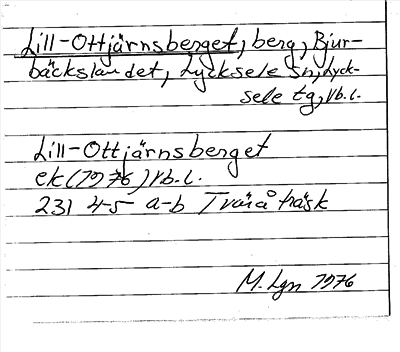 Lill-Ottjärnsberget, berg, Bjur-
bäckslandet, Lycksele sn, Lyck-
sele tg, Vb. l.
Lill-Ottjärnsberget
ek (1976) Vb. l.
231 4-5 a-b Tväråträsk
M. Lgn 1976